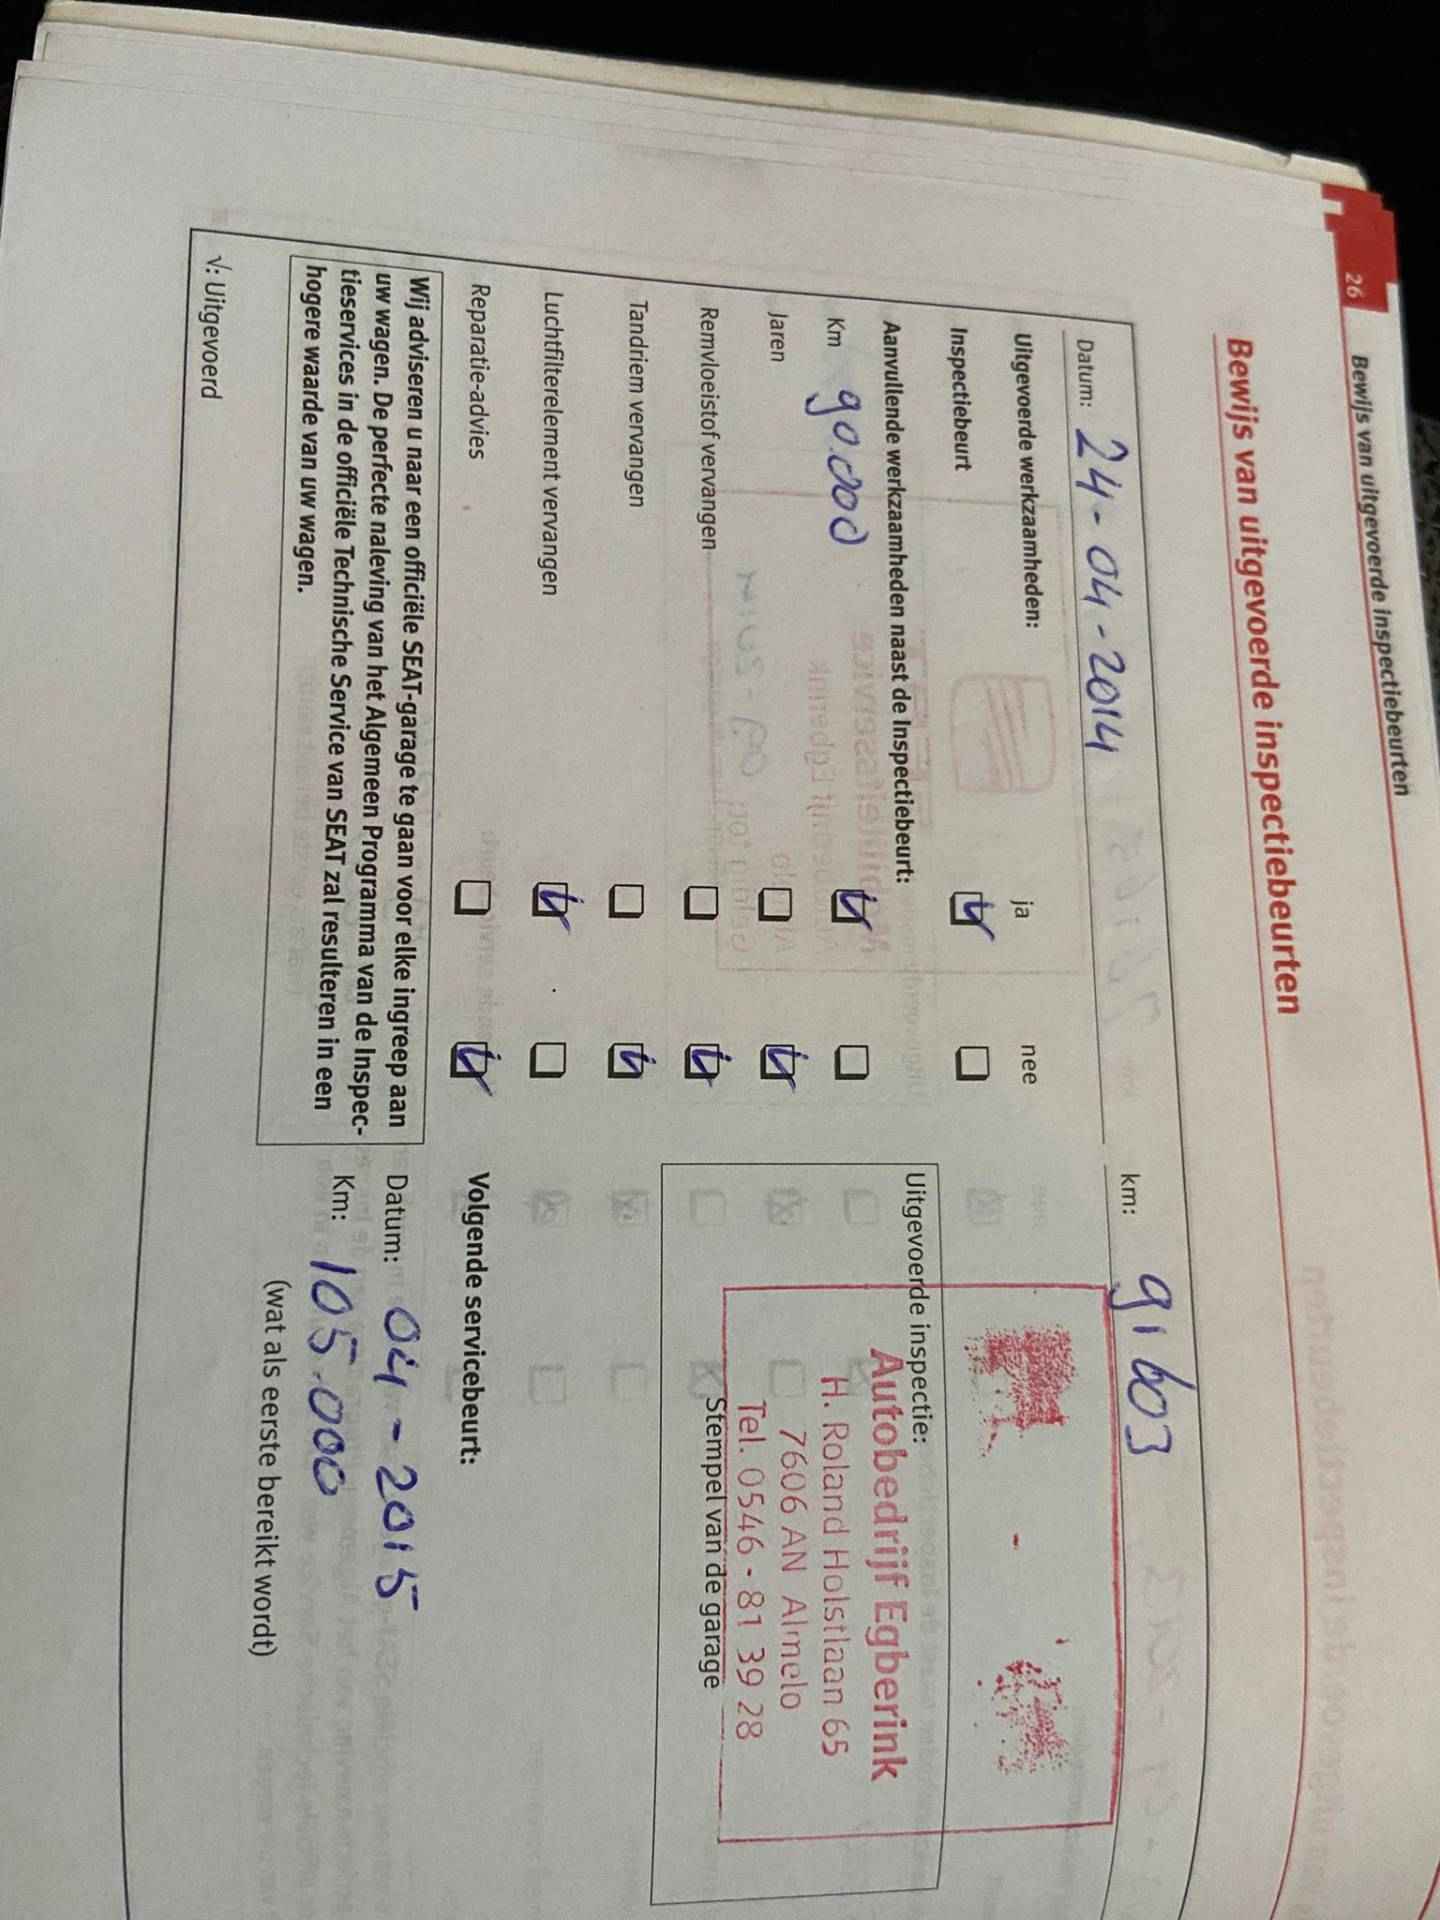 26 Bewijs van uitgevoerde inspectiebeurten
Bewijs van uitgevoerde inspectiebeurten
Datum: 24-04-2014 km: 91603
Uitgevoerde werkzaamheden: ja nee
Inspectiebeurt
Aanvullende werkzaamheden naast de Inspectiebeurt:
Km 90.000
Jaren
Remvloeistof vervangen
Tandriem vervangen
Luchtfilterelement vervangen
Reparatie-advies
Wij adviseren u naar een officiële SEAT-garage te gaan voor elke ingreep aan
uw wagen. De perfecte naleving van het Algemeen Programma van de Inspec-
tieservices in de officiële Technische Service van SEAT zal resulteren in een
hogere waarde van uw wagen.
√: Uitgevoerd
Uitgevoerde inspectie:
Autobedrijf Egberink
H. Roland Holstlaan 65
7606 AN Almelo
Tel. 0546 - 81 39 28
Stempel van de garage
Volgende servicebeurt:
Datum: 04-2015
Km: 105.000
(wat als eerste bereikt wordt)